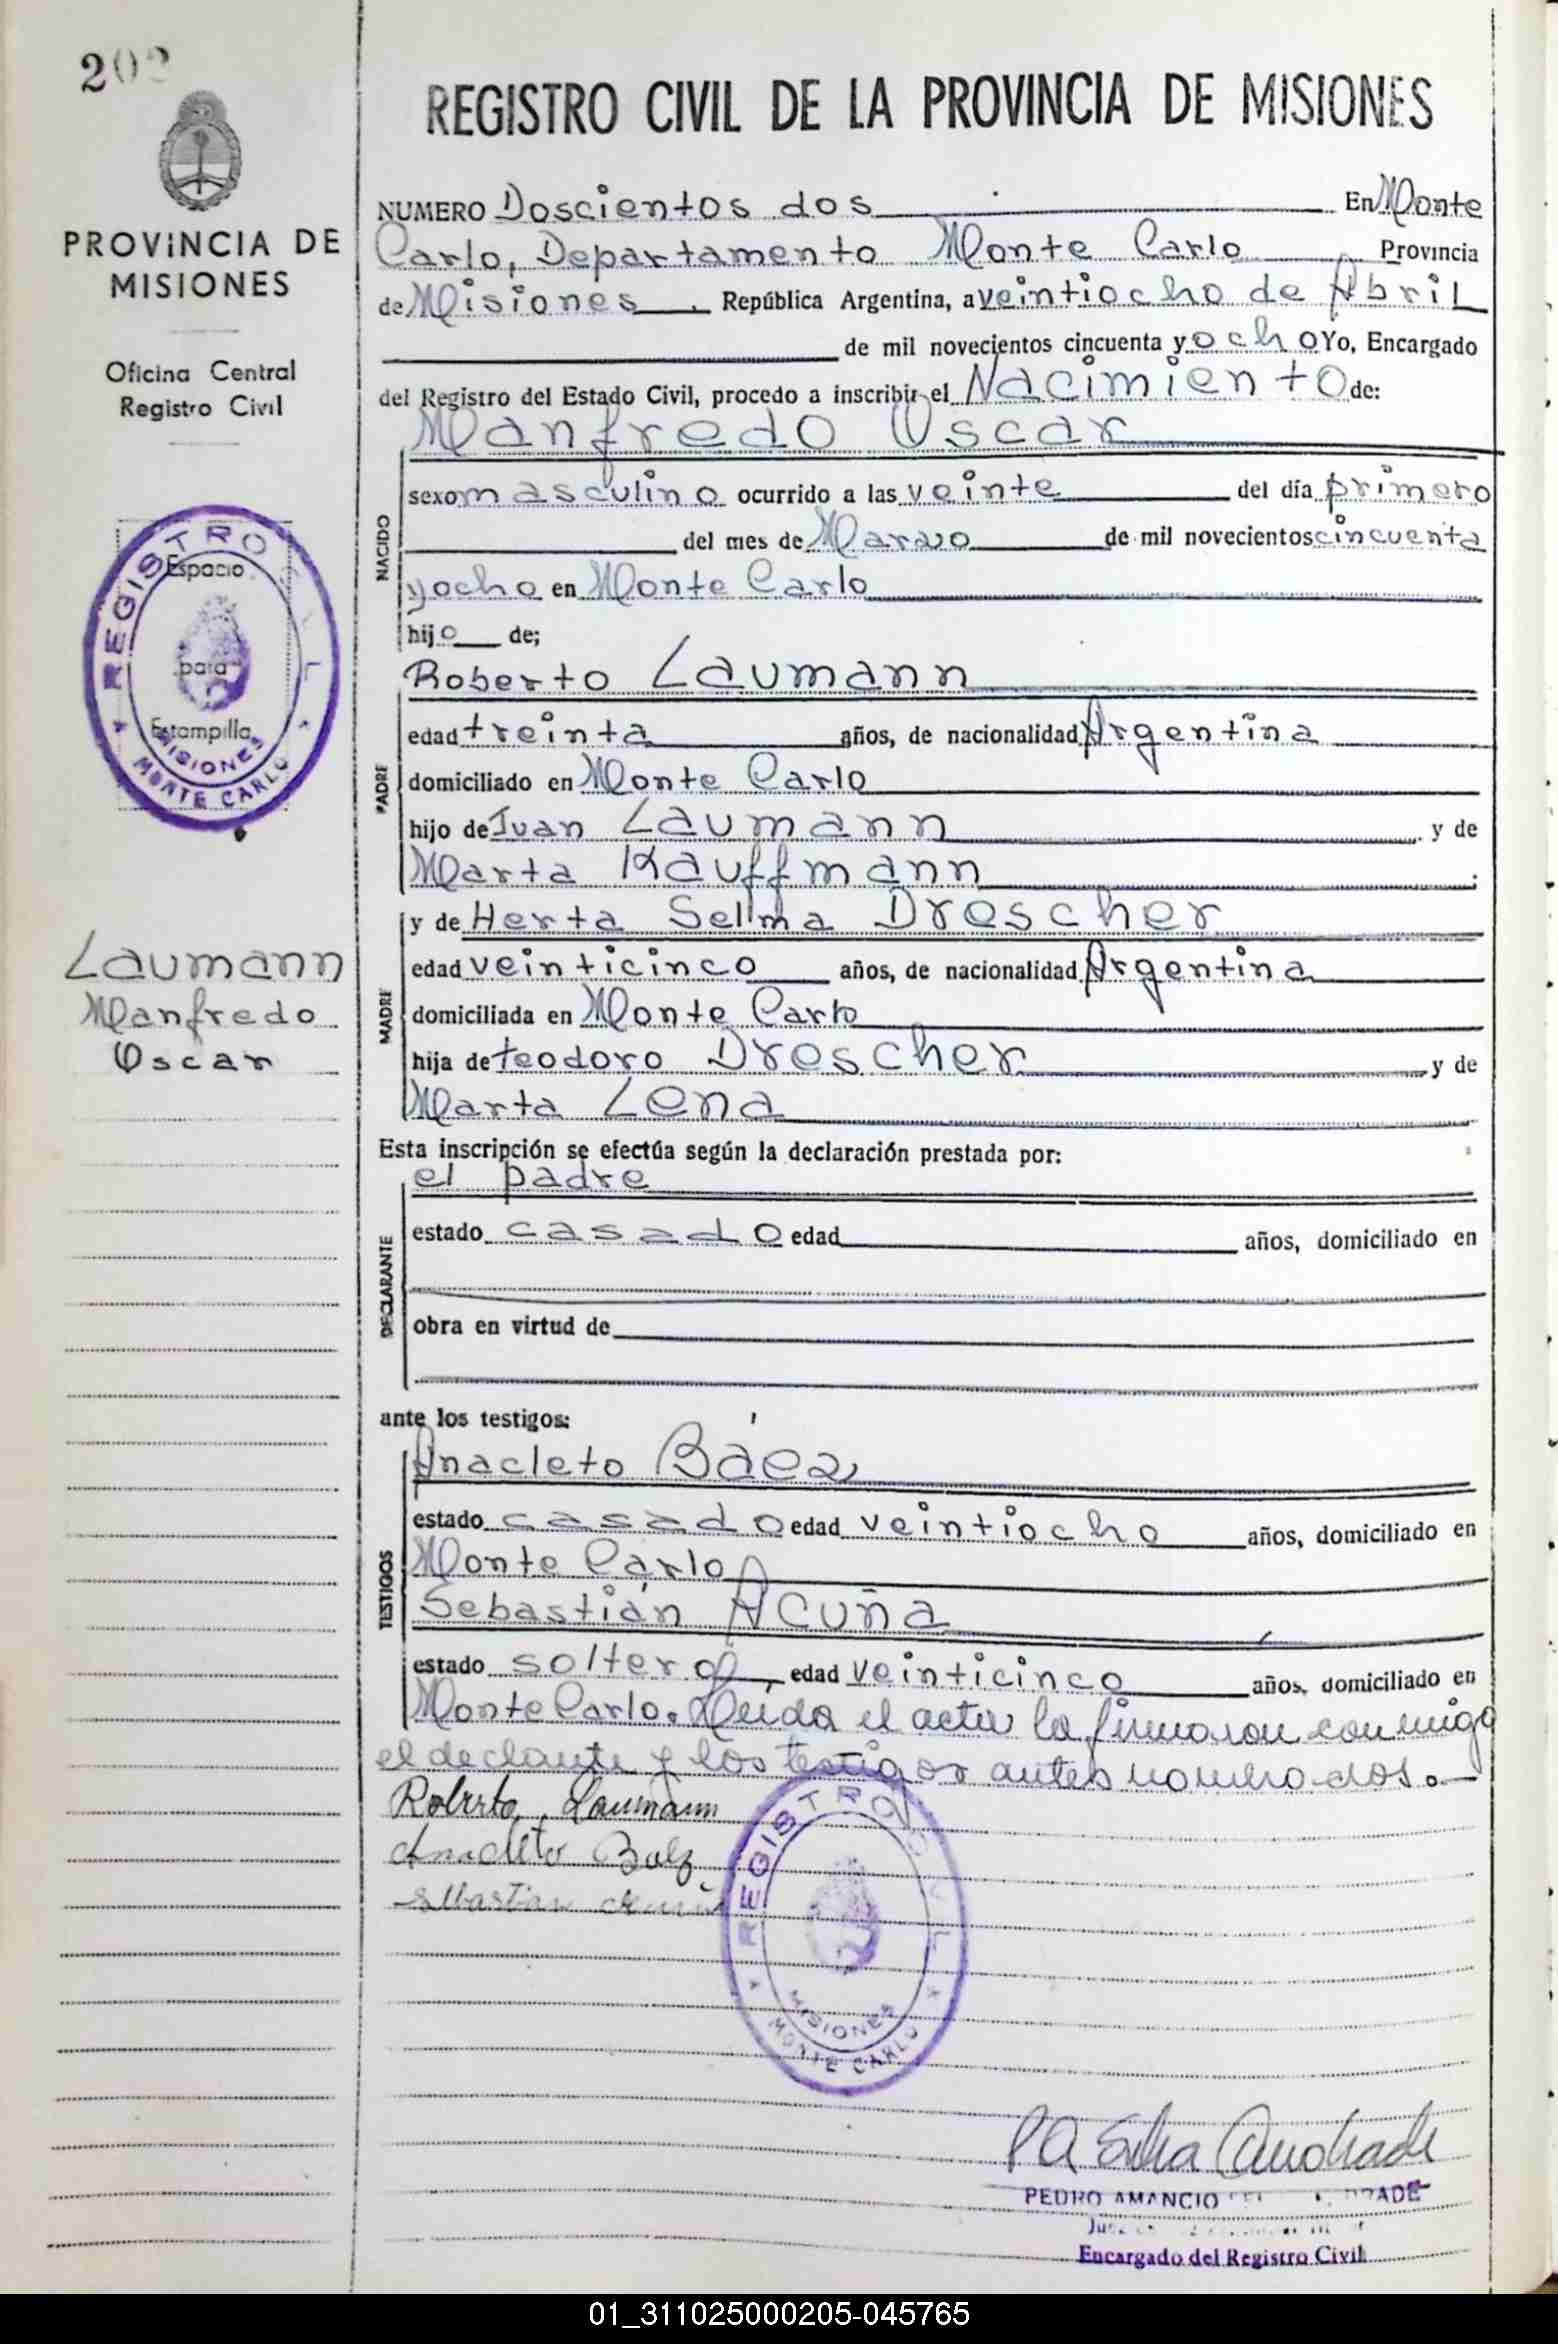 202
PROVINCIA DE
MISIONES
Oficina Central
Registro Civil
REGISTRO CIVIL
Espacio
para
Estampilla
MISIONES
MONTE CARLO
Laumann
Manfredo
Oscar
REGISTRO CIVIL DE LA PROVINCIA DE MISIONES
NUMERO Doscientos dos En Monte
Carlo, Departamento Monte Carlo Provincia
de Misiones. República Argentina, a veintiocho de Abril
de mil novecientos cincuenta y ocho Yo, Encargado
del Registro del Estado Civil, procedo a inscribir el Nacimiento de:
Manfredo Oscar
NACIDO
sexo masculino ocurrido a las veinte del día primero
del mes de Marzo de mil novecientos cincuenta
y ocho en Monte Carlo
hijo de;
Roberto Laumann
PADRE
edad treinta años, de nacionalidad Argentina
domiciliado en Monte Carlo
hijo de Juan Laumann y de
Marta Kauffmann
y de Herta Selma Drescher
MADRE
edad veinticinco años, de nacionalidad Argentina
domiciliada en Monte Carlo
hija de teodoro Drescher y de
Marta Lena
Esta inscripción se efectúa según la declaración prestada por:
el padre
DECLARANTE
estado casado edad años, domiciliado en
obra en virtud de
ante los testigos:
Anacleto Báez
TESTIGOS
estado casado edad veintiocho años, domiciliado en
Monte Carlo
Sebastián Acuña
estado soltero edad veinticinco años, domiciliado en
Monte Carlo. Leída el acta la firmaron conmigo
el declante y los testigos antes nombrados.
Roberto Laumann
Anacleto Baez
Sebastian Acuña
REGISTRO CIVIL
MISIONES
MONTE CARLO
P A Silva Andrade
PEDRO AMANCIO
Encargado del Registro Civil
01_311025000205-045765